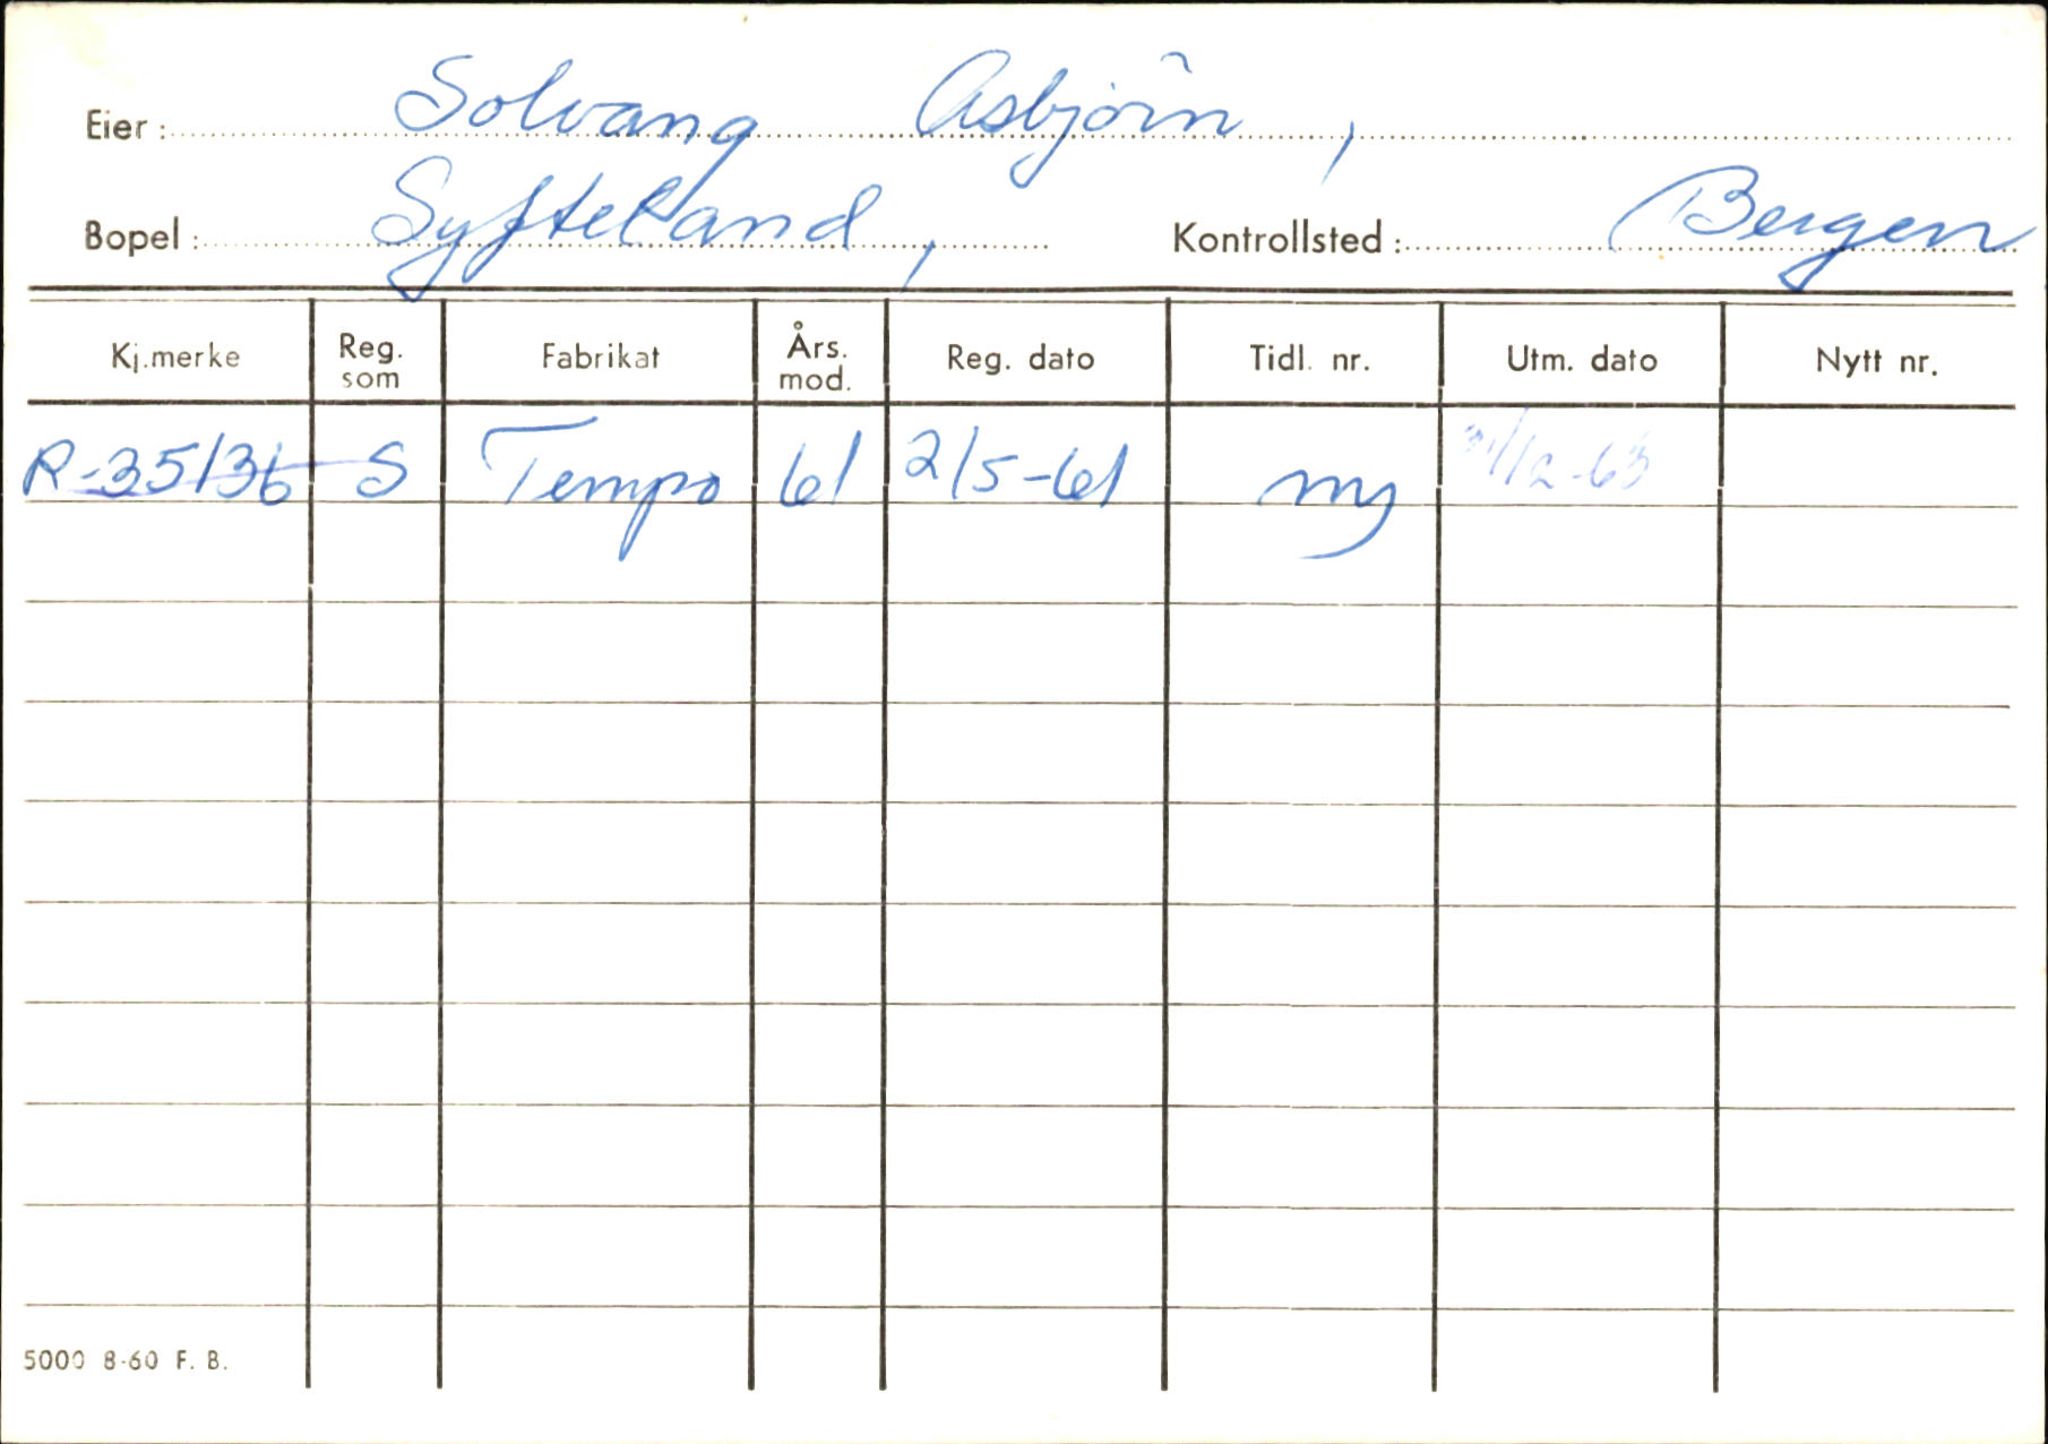 Eier: Solvang Asbjörn,
Bopel: Syfteland, Kontrollsted: Bergen
Kj.merke Reg. som Fabrikat Års. mod. Reg. dato Tidl. nr. Utm. dato Nytt nr.
R-35136 S Tempo 61 2/5-61 ny 31/12-63
5000 8-60 F. B.